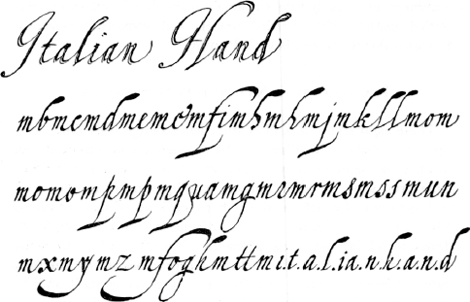 Italian Hand
mbmcmdmemémfimhmhmjmkllmom
momompmpmquamgmrmrmsmssmun
mxmymzmfoghmttmit.a.l.ia.n.h.a.n.d